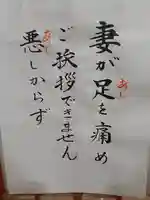 妻が足を痛め
ご挨拶できません
悪しからず
あし
あし